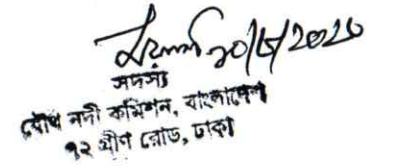 ১০/৫/2020
সদস্য
যৌথ নদী কমিশন, বাংলাদেশ
৭২ গ্রীণ রোড, ঢাকা